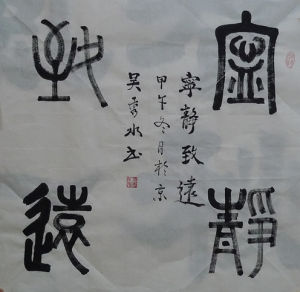 寧靜
致遠
寧靜致遠
甲午冬月於京
吴秀水书